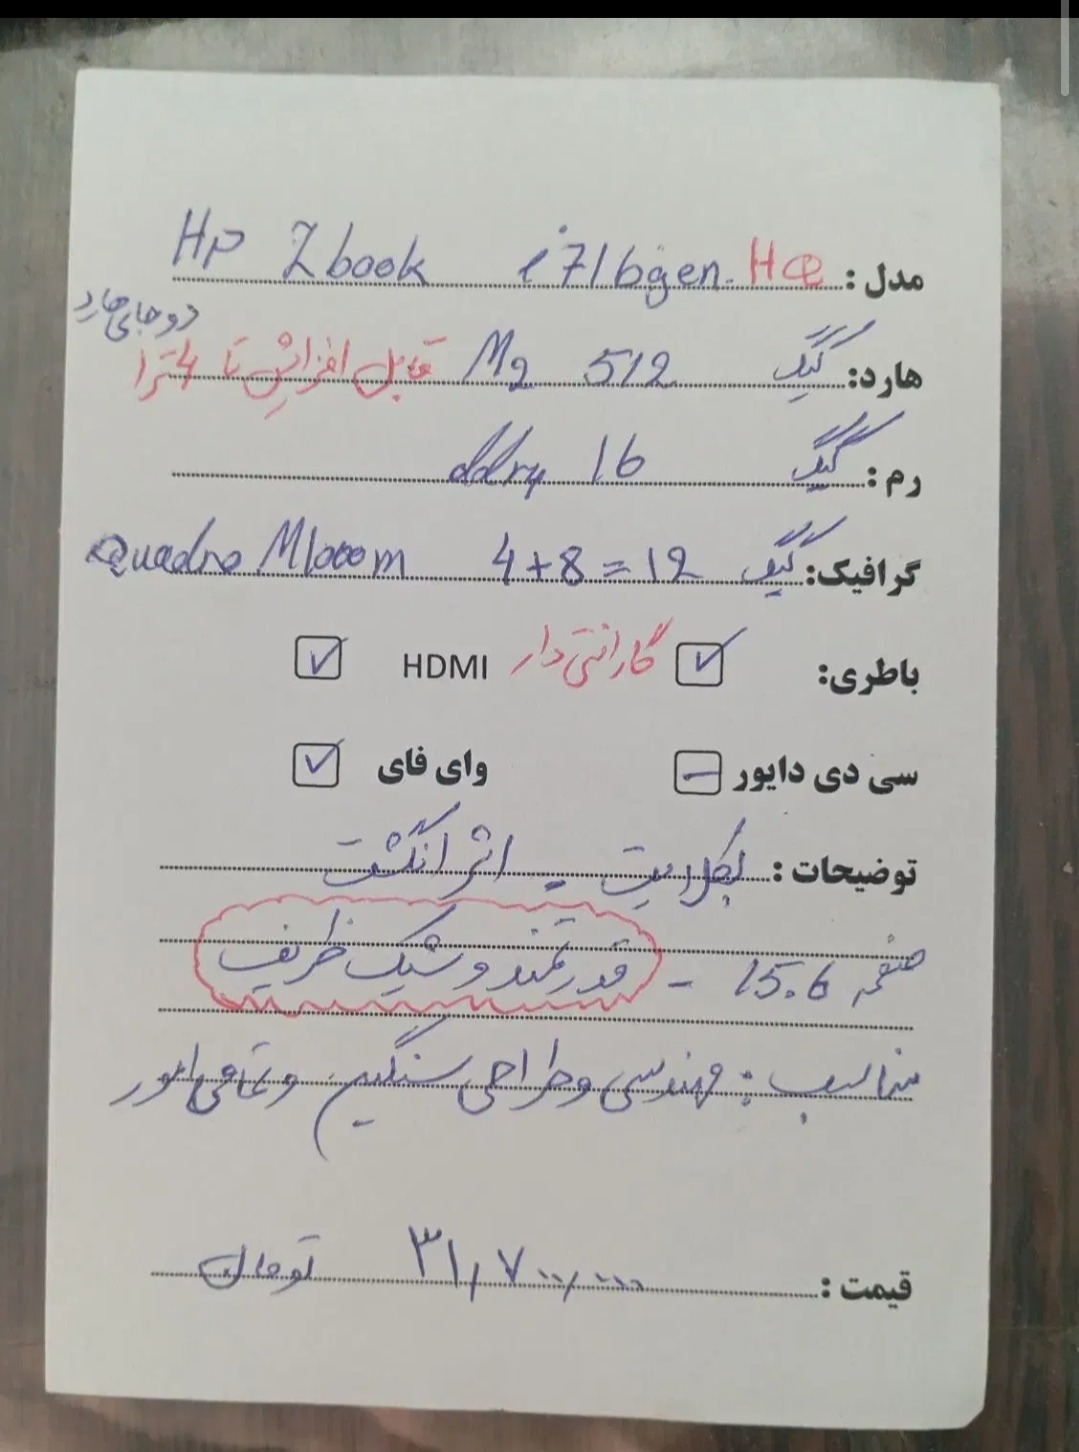 مدل : Hp Zbook i7 16gen. HQ
دو جای هارد
هارد: 512 گیگ M2 قابل افزایش تا 4ترا
رم : 16 گیگ ddr4
گرافیک: گیگ 4+8=12 Quadro M1000m
باطری: ☑ گارانتی دار HDMI ☑
سی دی دایور ⊟ وای فای ☑
توضیحات : بکلایت - اثر انگشت
صفحه 15.6 - قدرتمند و شیک ظریف
مناسب : مهندسی و طراحی سنگین و تمامی امور
قیمت : ۳۱,۷۰۰,۰۰۰ تومان